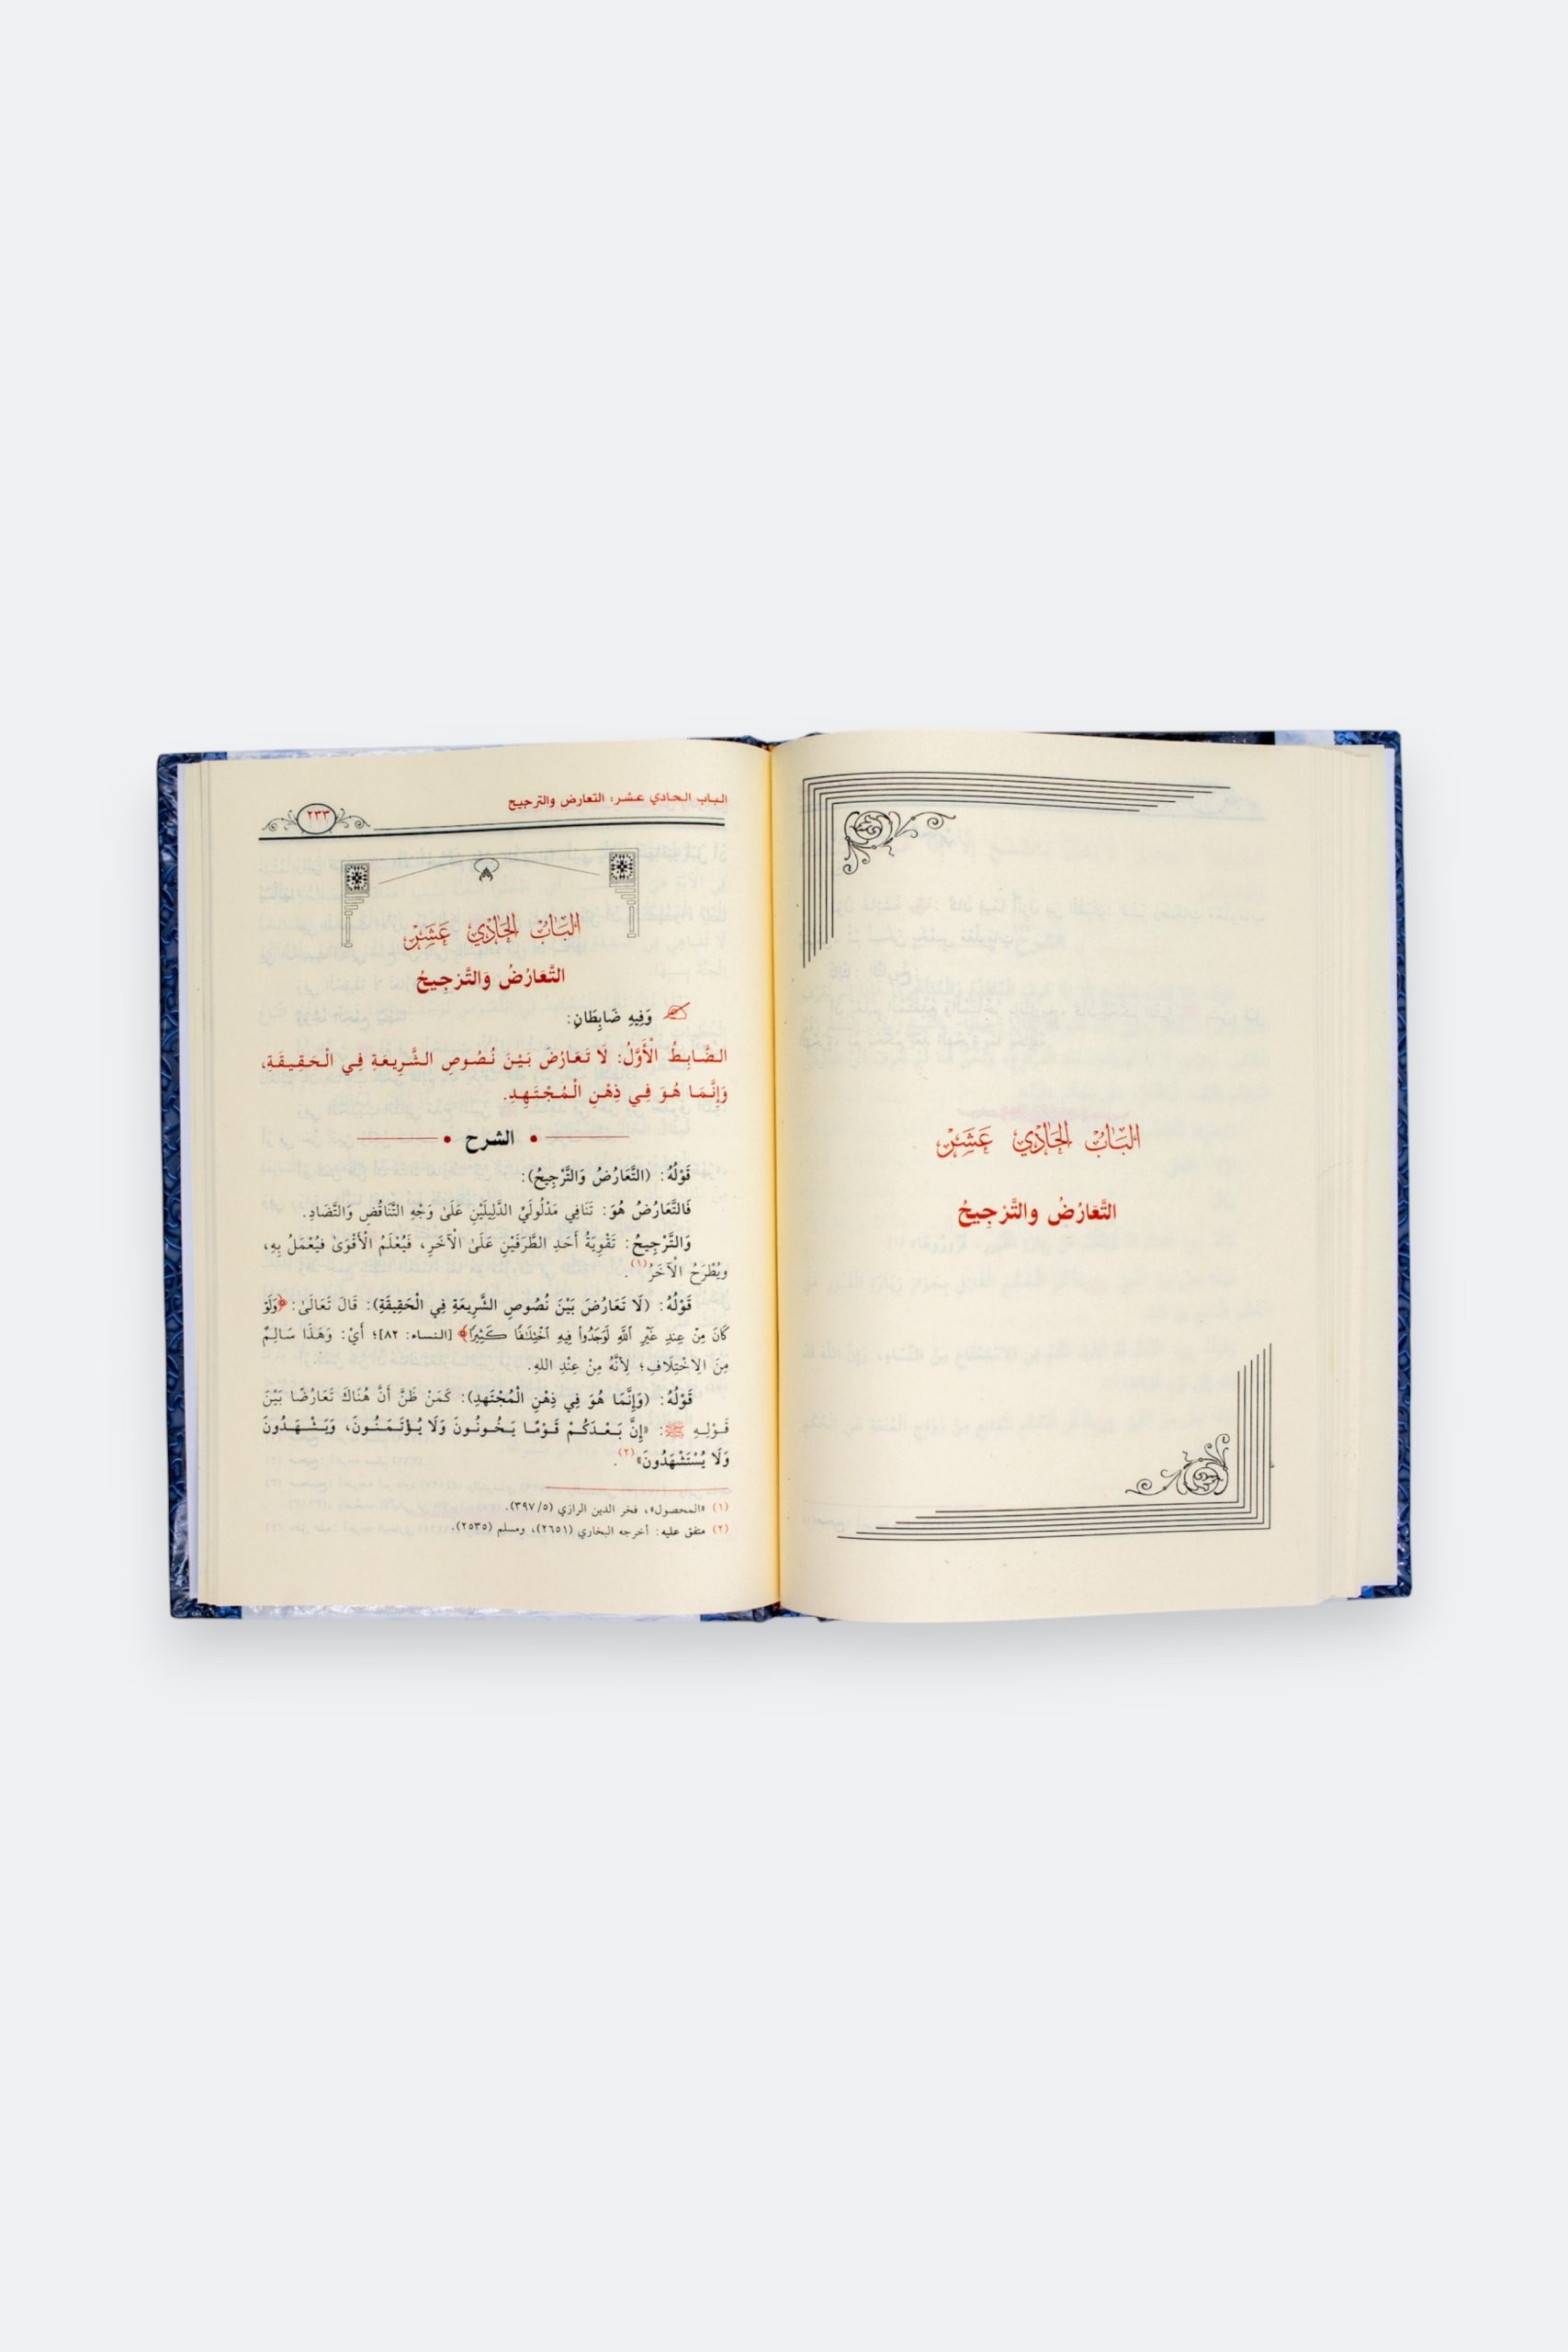 الْبَابُ الْحَادِي عَشَرَ
التَّعَارُضُ والتَّرْجِيحُ
الباب الحادي عشر: التعارض والترجيح
٢٣٣
الْبَابُ الْحَادِي عَشَرَ
التَّعَارُضُ وَالتَّرْجِيحُ
وَفِيهِ ضَابِطَانِ:
الضَّابِطُ الْأَوَّلُ: لَا تَعَارُضَ بَيْنَ نُصُوصِ الشَّرِيعَةِ فِي الْحَقِيقَةِ،
وَإِنَّمَا هُوَ فِي ذِهْنِ الْمُجْتَهِدِ.
• الشرح •
قَوْلُهُ: (التَّعَارُضُ وَالتَّرْجِيحُ):
فَالتَّعَارُضُ هُوَ: تَنَافِي مَدْلُولَيِ الدَّلِيلَيْنِ عَلَىٰ وَجْهِ التَّنَاقُضِ وَالتَّضَادِ.
وَالتَّرْجِيحُ: تَقْوِيَةُ أَحَدِ الطَّرَفَيْنِ عَلَىٰ الْآخَرِ، فَيُعْلَمُ الْأَقْوَىٰ فيُعْمَلُ بِهِ،
ويُطْرَحُ الْآخَرُ(١).
قَوْلُهُ: (لَا تَعَارُضَ بَيْنَ نُصُوصِ الشَّرِيعَةِ فِي الْحَقِيقَةِ): قَالَ تَعَالَىٰ: ﴿وَلَوْ
كَانَ مِنْ عِندِ غَيْرِ ٱللَّهِ لَوَجَدُوا۟ فِيهِ ٱخْتِلَٰفًا كَثِيرًا﴾ [النساء: ٨٢]؛ أَيْ: وَهَذَا سَالِمٌ
مِنَ الِاخْتِلَافِ؛ لِأَنَّهُ مِنْ عِنْدِ اللهِ.
قَوْلُهُ: (وَإِنَّمَا هُوَ فِي ذِهْنِ الْمُجْتَهِدِ): كَمَنْ ظَنَّ أَنَّ هُنَاكَ تَعَارُضًا بَيْنَ
قَوْلِهِ ﷺ: «إِنَّ بَعْدَكُمْ قَوْمًا يَخُونُونَ وَلَا يُؤْتَمَنُونَ، وَيَشْهَدُونَ
وَلَا يُسْتَشْهَدُونَ»(٢).
(١) «المحصول»، فخر الدين الرازي (٥/ ٣٩٧).
(٢) متفق عليه: أخرجه البخاري (٢٦٥١)، ومسلم (٢٥٣٥).